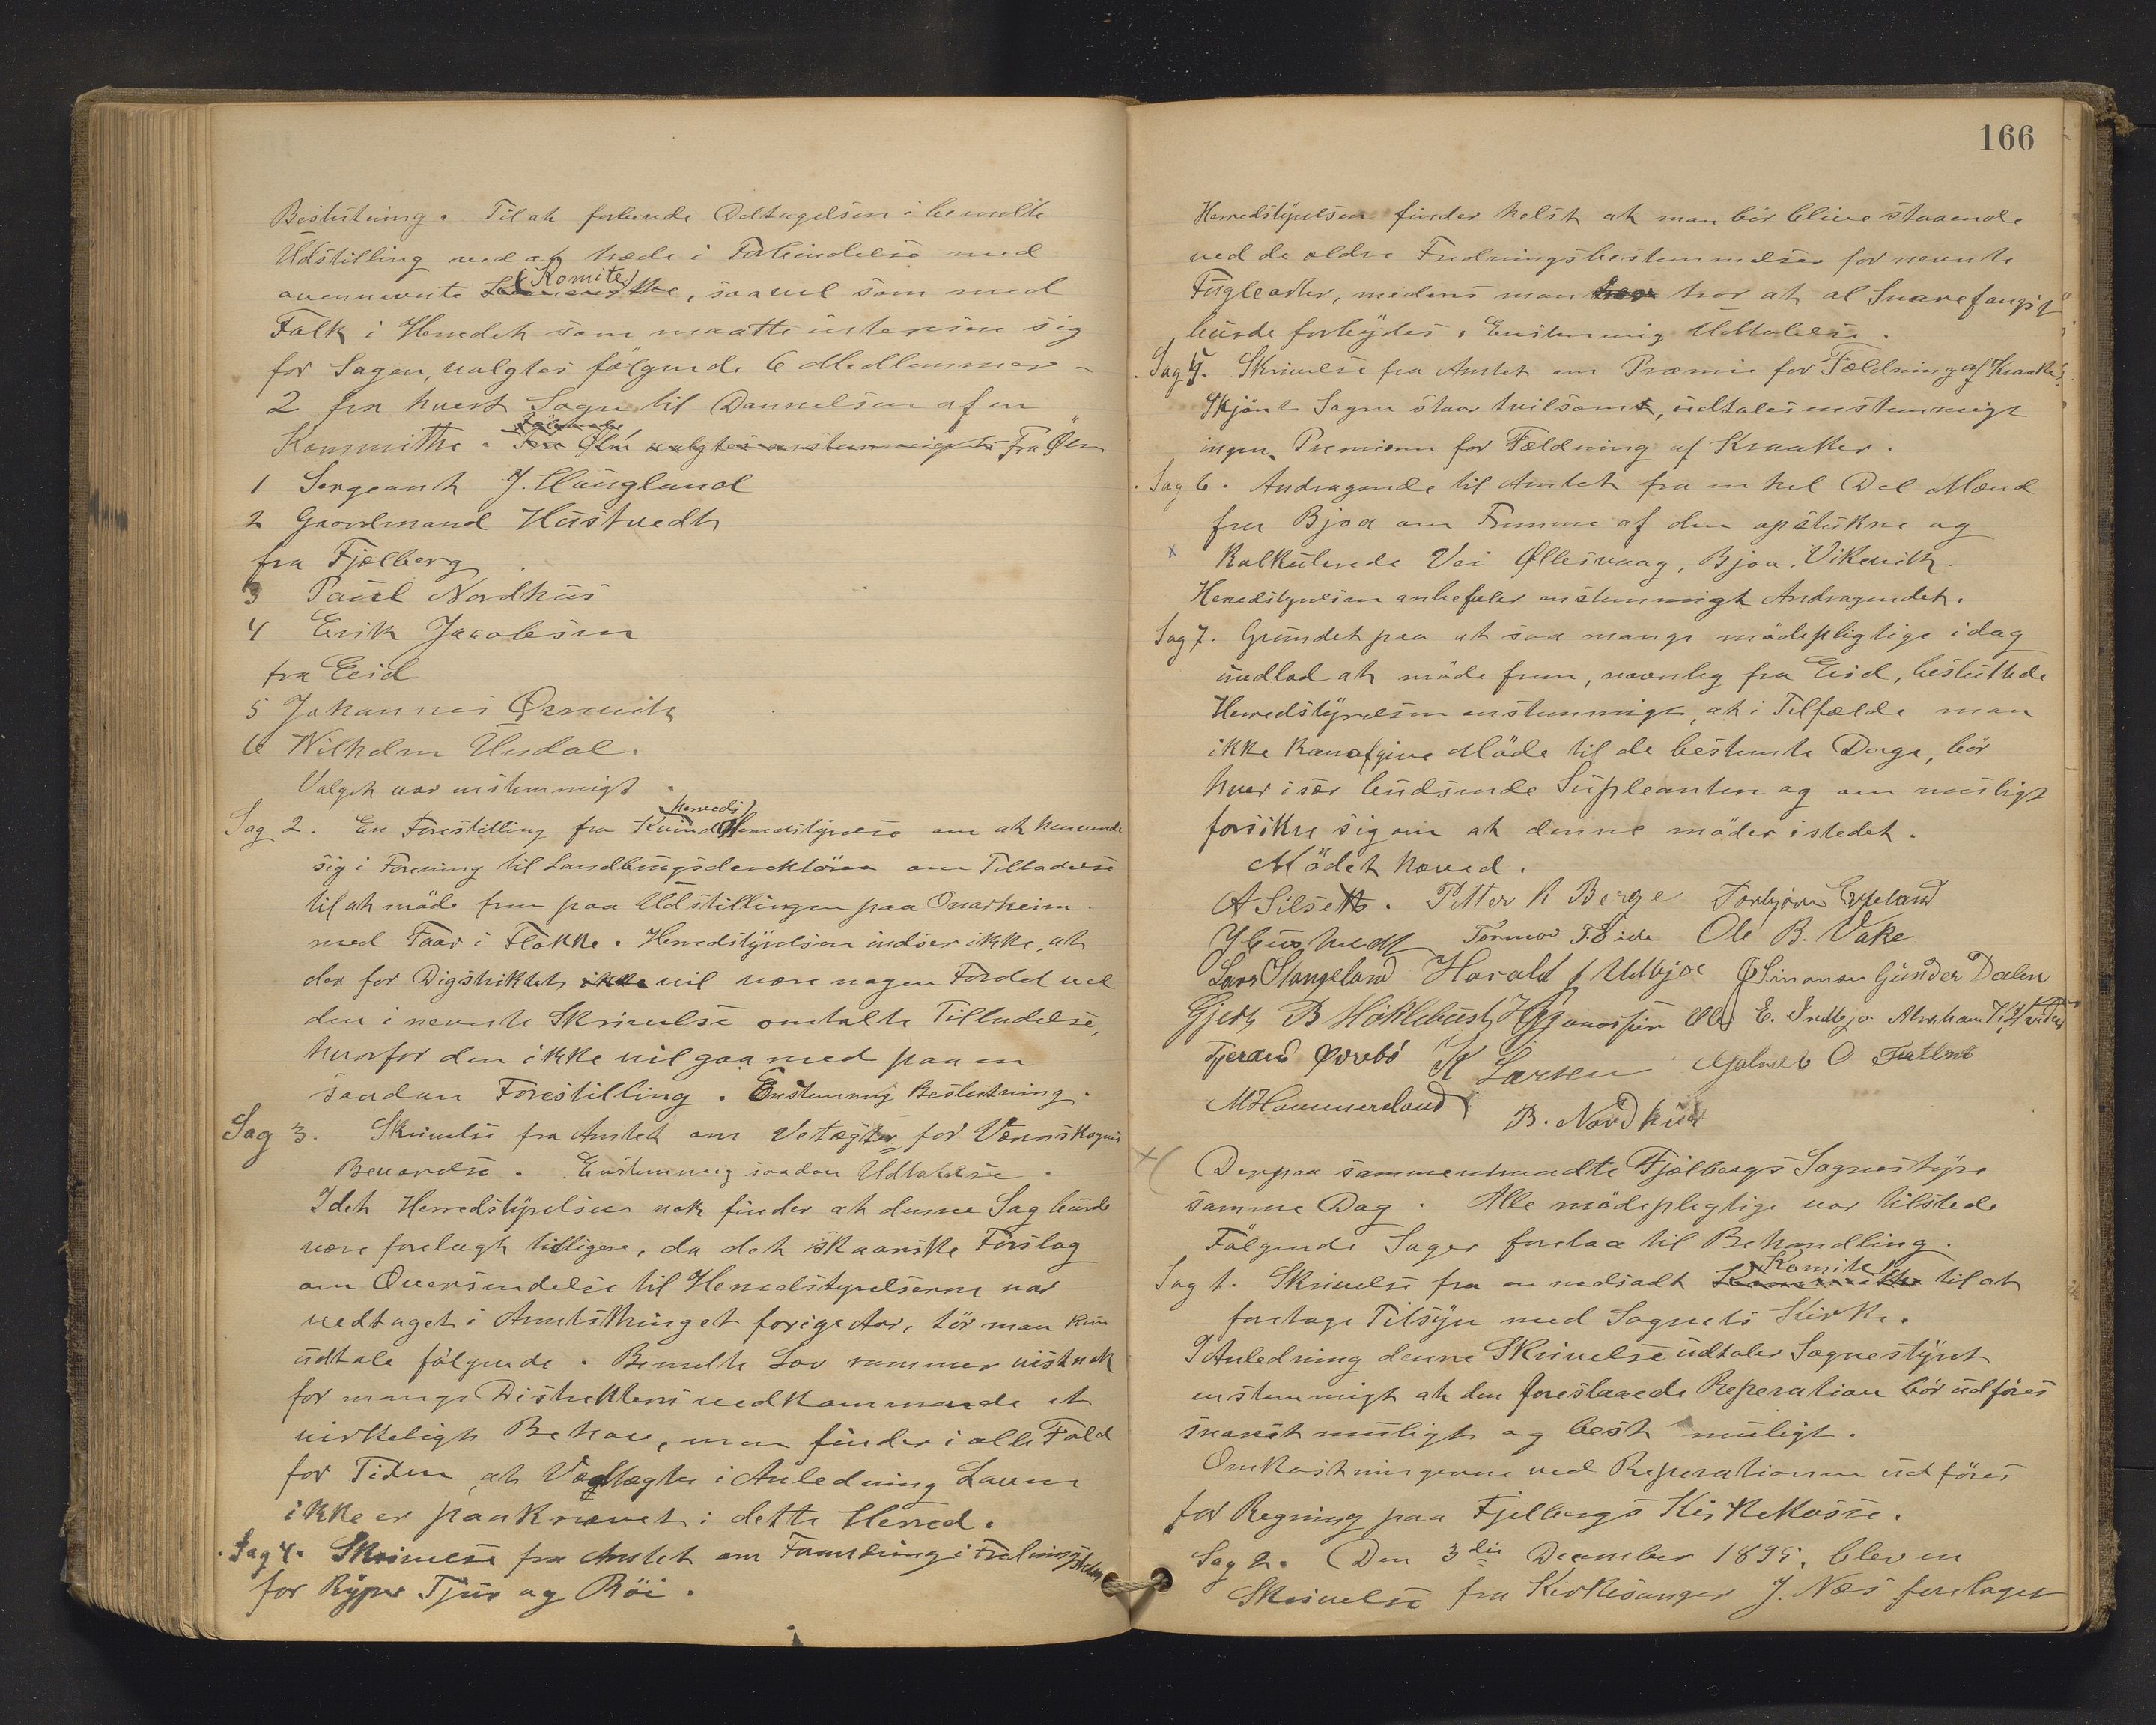 Beslutning. Til at forberede Deltagelsen i bemelte
Udstilling ved at træde i Forbindelse med
ovennevnte (Komite), saavel som med
Folk i Herredet som maatte interesere sig
for Sagen, valgtes følgende 6 Medlemmer
2 fra hvert Sogn til Dannelsen af en
Kommitte. Fra Ølen valgtes enstemmigt fra Ølen
1 Sergeant J. Haugland
2 Gaardmand Hustvedt
fra Fjelberg
3 Paul Nordhus
4 Erik Jacobsen
fra Eid
5 Johannes Ørsevik
6 Wilhelm Undal.
Valget var enstemmigt.
Sag 2. En Forestilling fra Kvindherreds Herredstyrelse om at henvende
sig i Forening til Landbrugsderektøren om Tilladelse
til at møde frem paa Udstillingen paa Onarheim
med Faar i Flokke. Herredstyrelsen indser ikke, at
der for Digstriktet ikke vil være nogen Fordel ved
den i nevnte Skrivelse omtalte Tilladelse,
hvorfor den ikke vil gaa med paa en
saadan Forestilling. Enstemmig Beslutning.
Sag 3. Skrivelse fra Amtet om Vetægter for Vernskogens
Bevarelse. Enstemmig saadan Udtalelse.
Idet Herredstyrelsen nok finder at denne Sag burde
være forelagt tidligere, da det skaarske Forslag
om Oversendelse til Herredstyrelserne var
vedtaget i Amtsthinget forige Aar, tør man kun
udtale følgende. Bemelte Lov rammer vistnok
for mange Distrikters vedkommende et
virkeligt Behov, men finder i alle Fald
for Tiden, at Vedtægter i Anledning Loven
ikke er paakrævet i dette Herred.
Sag 4. Skrivelse fra Amtet om Forandring i Fredningstiden
for Ryper Tjur og Røi.
166
Herredstyrelsen finder helst at man bør blive staaende
ved de ældre Fredningsbestemmelser for nevnte
Fuglearter, medens man tror at al Snarefangst
burde forbydes. Enstemmig Udtalelse.
Sag 5. Skrivelse fra Amtet om Præmie for Fældning af Kraaker.
Skjønt Sagen staar tvilsomt, udtales enstemmigt
ingen Premienn for Fældning af Kraaker.
Sag 6. Andragende til Amtet fra en hel Del Mænd
fra Bjoa om Fremme af den opstukne og
x Kalkulerede Vei Øllesvaag, Bjoa, Vikevik.
Herredstyrelsen anbefaler enstemmigt Andragendet.
Sag 7. Grundet paa at saa mange mødepligtige idag
undlod at møde frem, navnlig fra Eid, besluttede
Herredstyrelsen enstemmigt, at i Tilfælde man
ikke kan afgive Møde til de bestemte Dage, bør
hver især budsende Supleanten og om muligt
forsikre sig om at denne møder istedet.
Mødet hæved.
A Silseth. Petter K Berge Torbjørn Espeland
J Hustvedt Tormod T Eide Ole B. Vake
Lars Stangeland Harald J Utbjoe J Simonsen Gunder Dalen
Gjert B Høklebust Ole E. Indbjo Abraham
Tjerand Øvrebø K Larsen O
M Hammersland B. Nordhus
x( Derpaa sammentraadte Fjelbergs Sognestyre
samme Dag. Alle mødeplegtige var tilstede
Følgende Sager forelaa til Behandling.
Sag 1. Skrivelse fra en nedsadt Komite til at
foretage Tilsyn med Sognets Kirke.
I Anledning denne Skrivelse udtaler Sognestyret
enstemmigt at den foreslaaede Reperation bør udføres
snarest muligt og best muligt.
Omkostningerne ved Reperationen udføres
for Regning paa Fjelbergs Kirkekasse.
Sag 2. Den 3die December 1895, blev en
Skrivelse fra Kirkesanger J. Næs foretaget